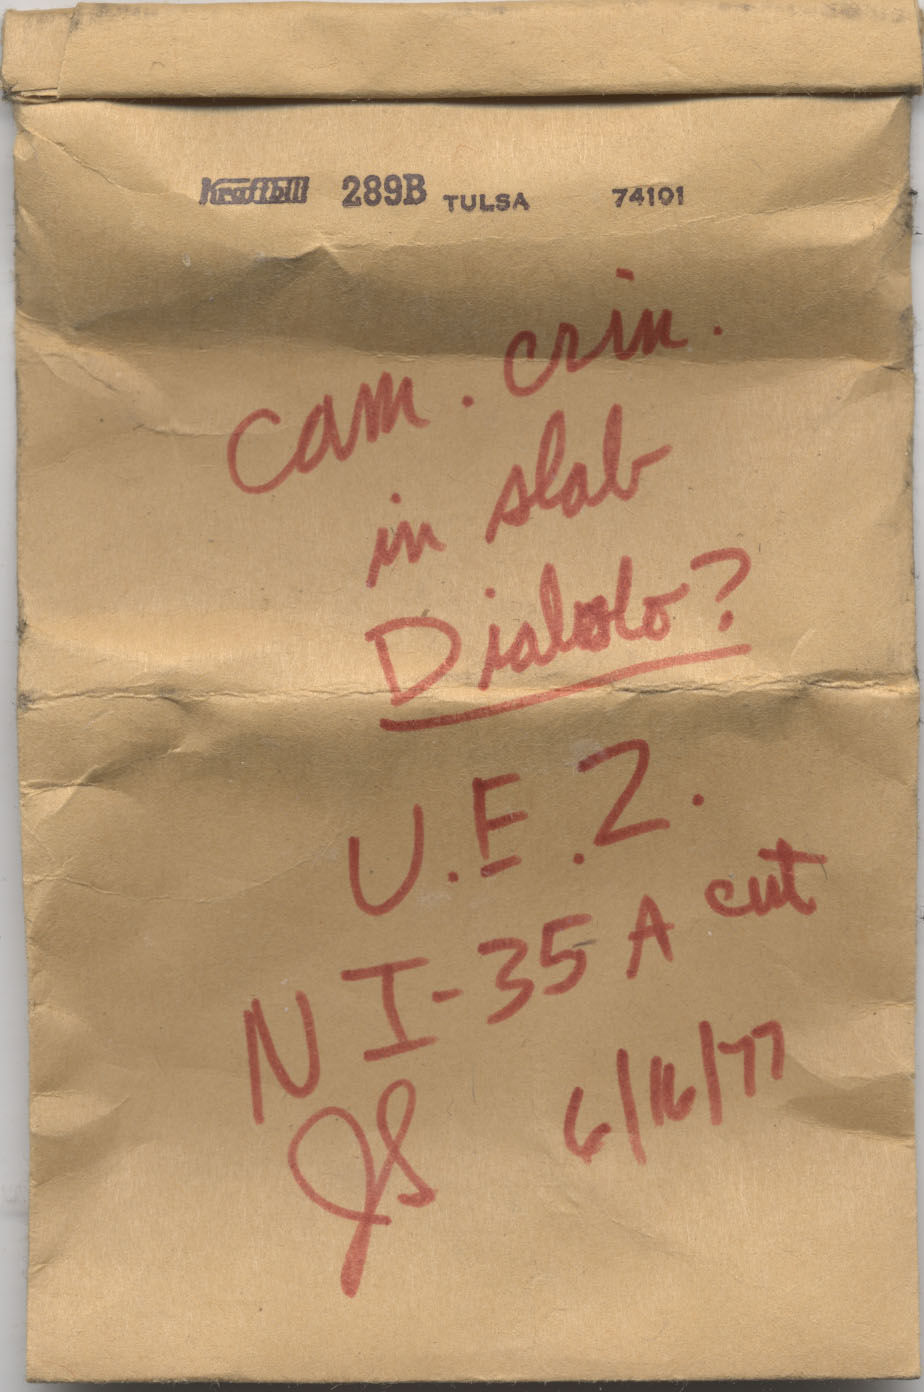 Kraftbilt 289B TULSA 74101
cam. crin.
in slab
Diabolo?
U.E.Z.
N I-35 A cut
JS 6/16/77